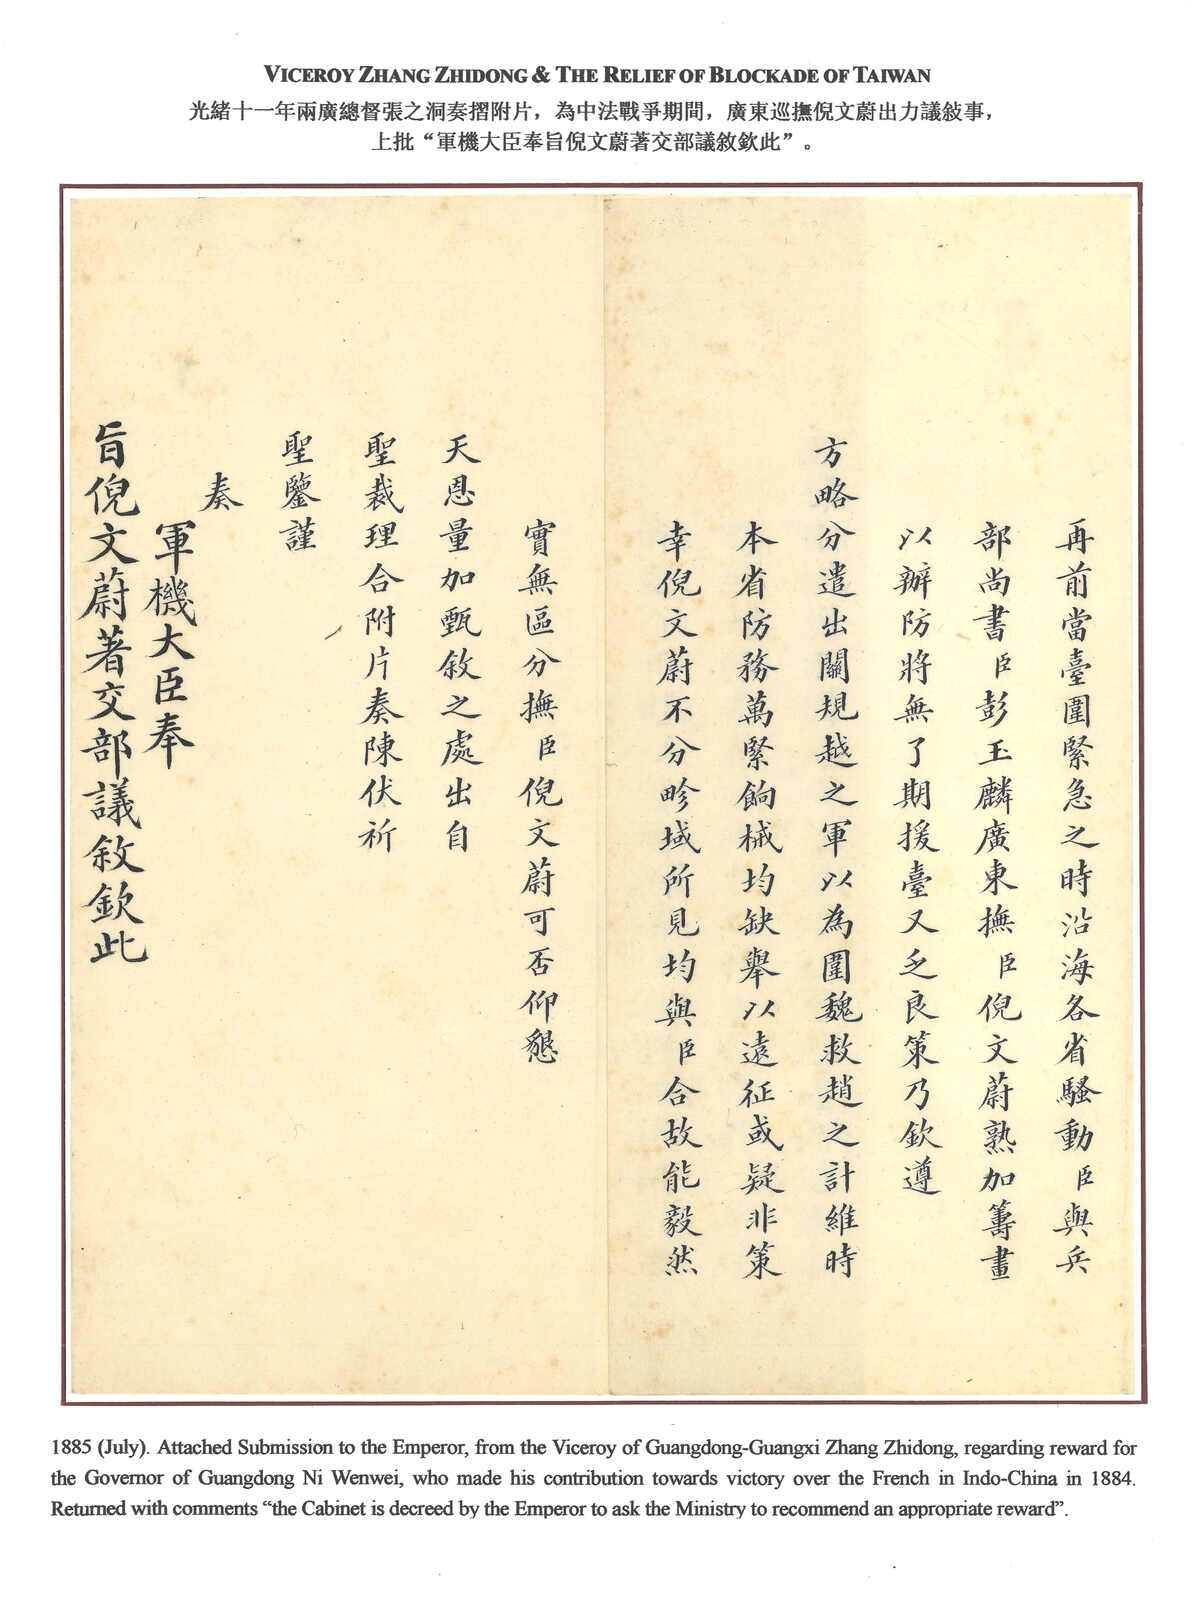 VICEROY ZHANG ZHIDONG & THE RELIEF OF BLOCKADE OF TAIWAN
光緒十一年兩廣總督張之洞奏摺附片，為中法戰爭期間，廣東巡撫倪文蔚出力議敍事，
上批“軍機大臣奉旨倪文蔚著交部議敘欽此”。
再前當臺圍緊急之時沿海各省騷動臣與兵
部尚書臣彭玉麟廣東撫臣倪文蔚熟加籌畫
以辦防將無了期援臺又乏良策乃欽遵
方略分遣出關規越之軍以為圍魏救趙之計維時
本省防務萬緊餉械均缺舉以遠征或疑非策
幸倪文蔚不分畛域所見均與臣合故能毅然
實無區分撫臣倪文蔚可否仰懇
天恩量加甄敘之處出自
聖裁理合附片奏陳伏祈
聖鑒謹
奏
軍機大臣奉
旨倪文蔚著交部議敘欽此
1885 (July). Attached Submission to the Emperor, from the Viceroy of Guangdong-Guangxi Zhang Zhidong, regarding reward for
the Governor of Guangdong Ni Wenwei, who made his contribution towards victory over the French in Indo-China in 1884.
Returned with comments “the Cabinet is decreed by the Emperor to ask the Ministry to recommend an appropriate reward”.